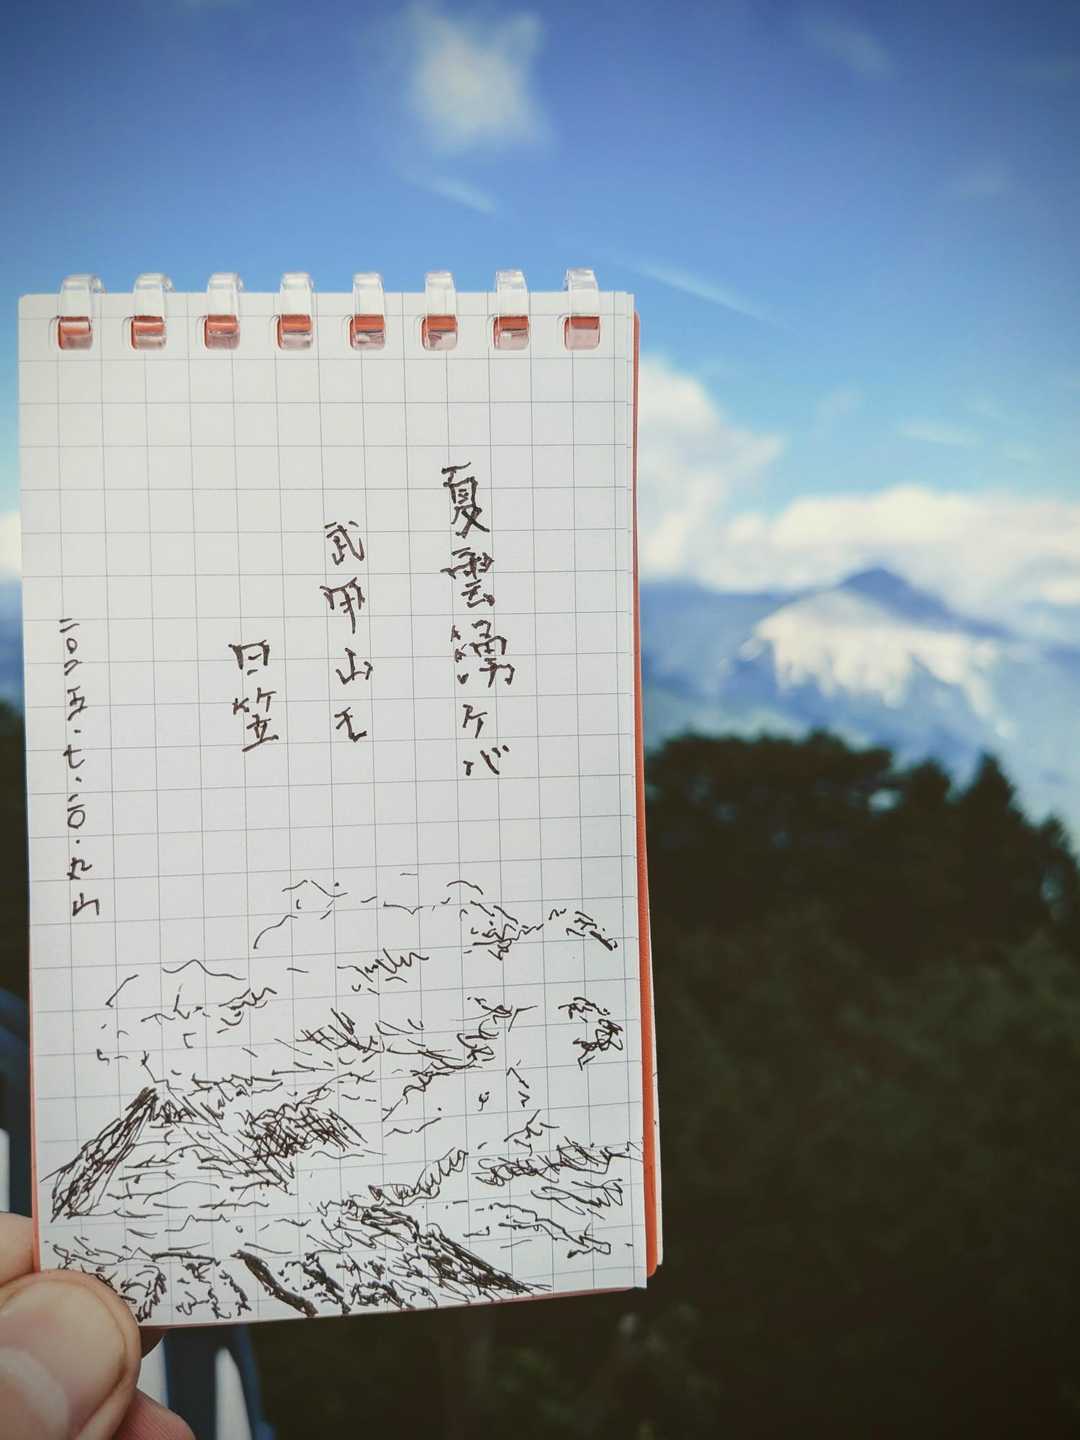 夏雲湧ケバ
武甲山モ
日笠
二〇二五・七・二〇・丸山